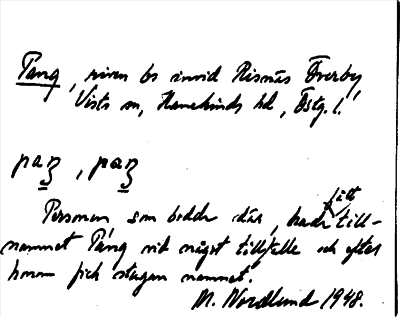 Pang, riven bs invid Risnäs Överby,
Vists sn, Hanekinds hd, Östg. l.
paŋ, paŋ
fått
Personen som bodde där, hade till-
namnet Pang vid något tillfälle och efter
honom fick stugan namnet.
M. Nordlund 1948.